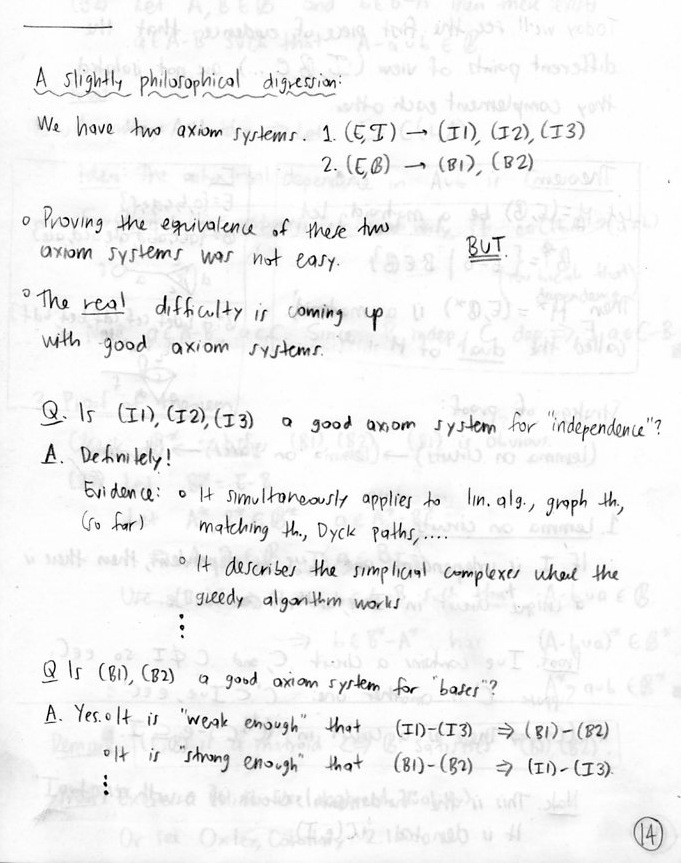 A slightly philosophical digression:
We have two axiom systems. 1. (E, I) → (I1), (I2), (I3)
2. (E, B) → (B1), (B2)
◦ Proving the equivalence of these two
axiom systems was not easy. BUT
◦ The real difficulty is coming up
with good axiom systems.
Q. Is (I1), (I2), (I3) a good axiom system for "independence"?
A. Definitely!
Evidence: ◦ It simultaneously applies to lin. alg., graph th,
(so far) matching th., Dyck paths, ....
◦ It describes the simplicial complexes where the
greedy algorithm works
⋮
Q Is (B1), (B2) a good axiom system for "bases"?
A. Yes. ◦ It is "weak enough" that (I1)-(I3) ⇒ (B1)-(B2)
◦ It is "strong enough" that (B1)-(B2) ⇒ (I1)-(I3).
⋮
14